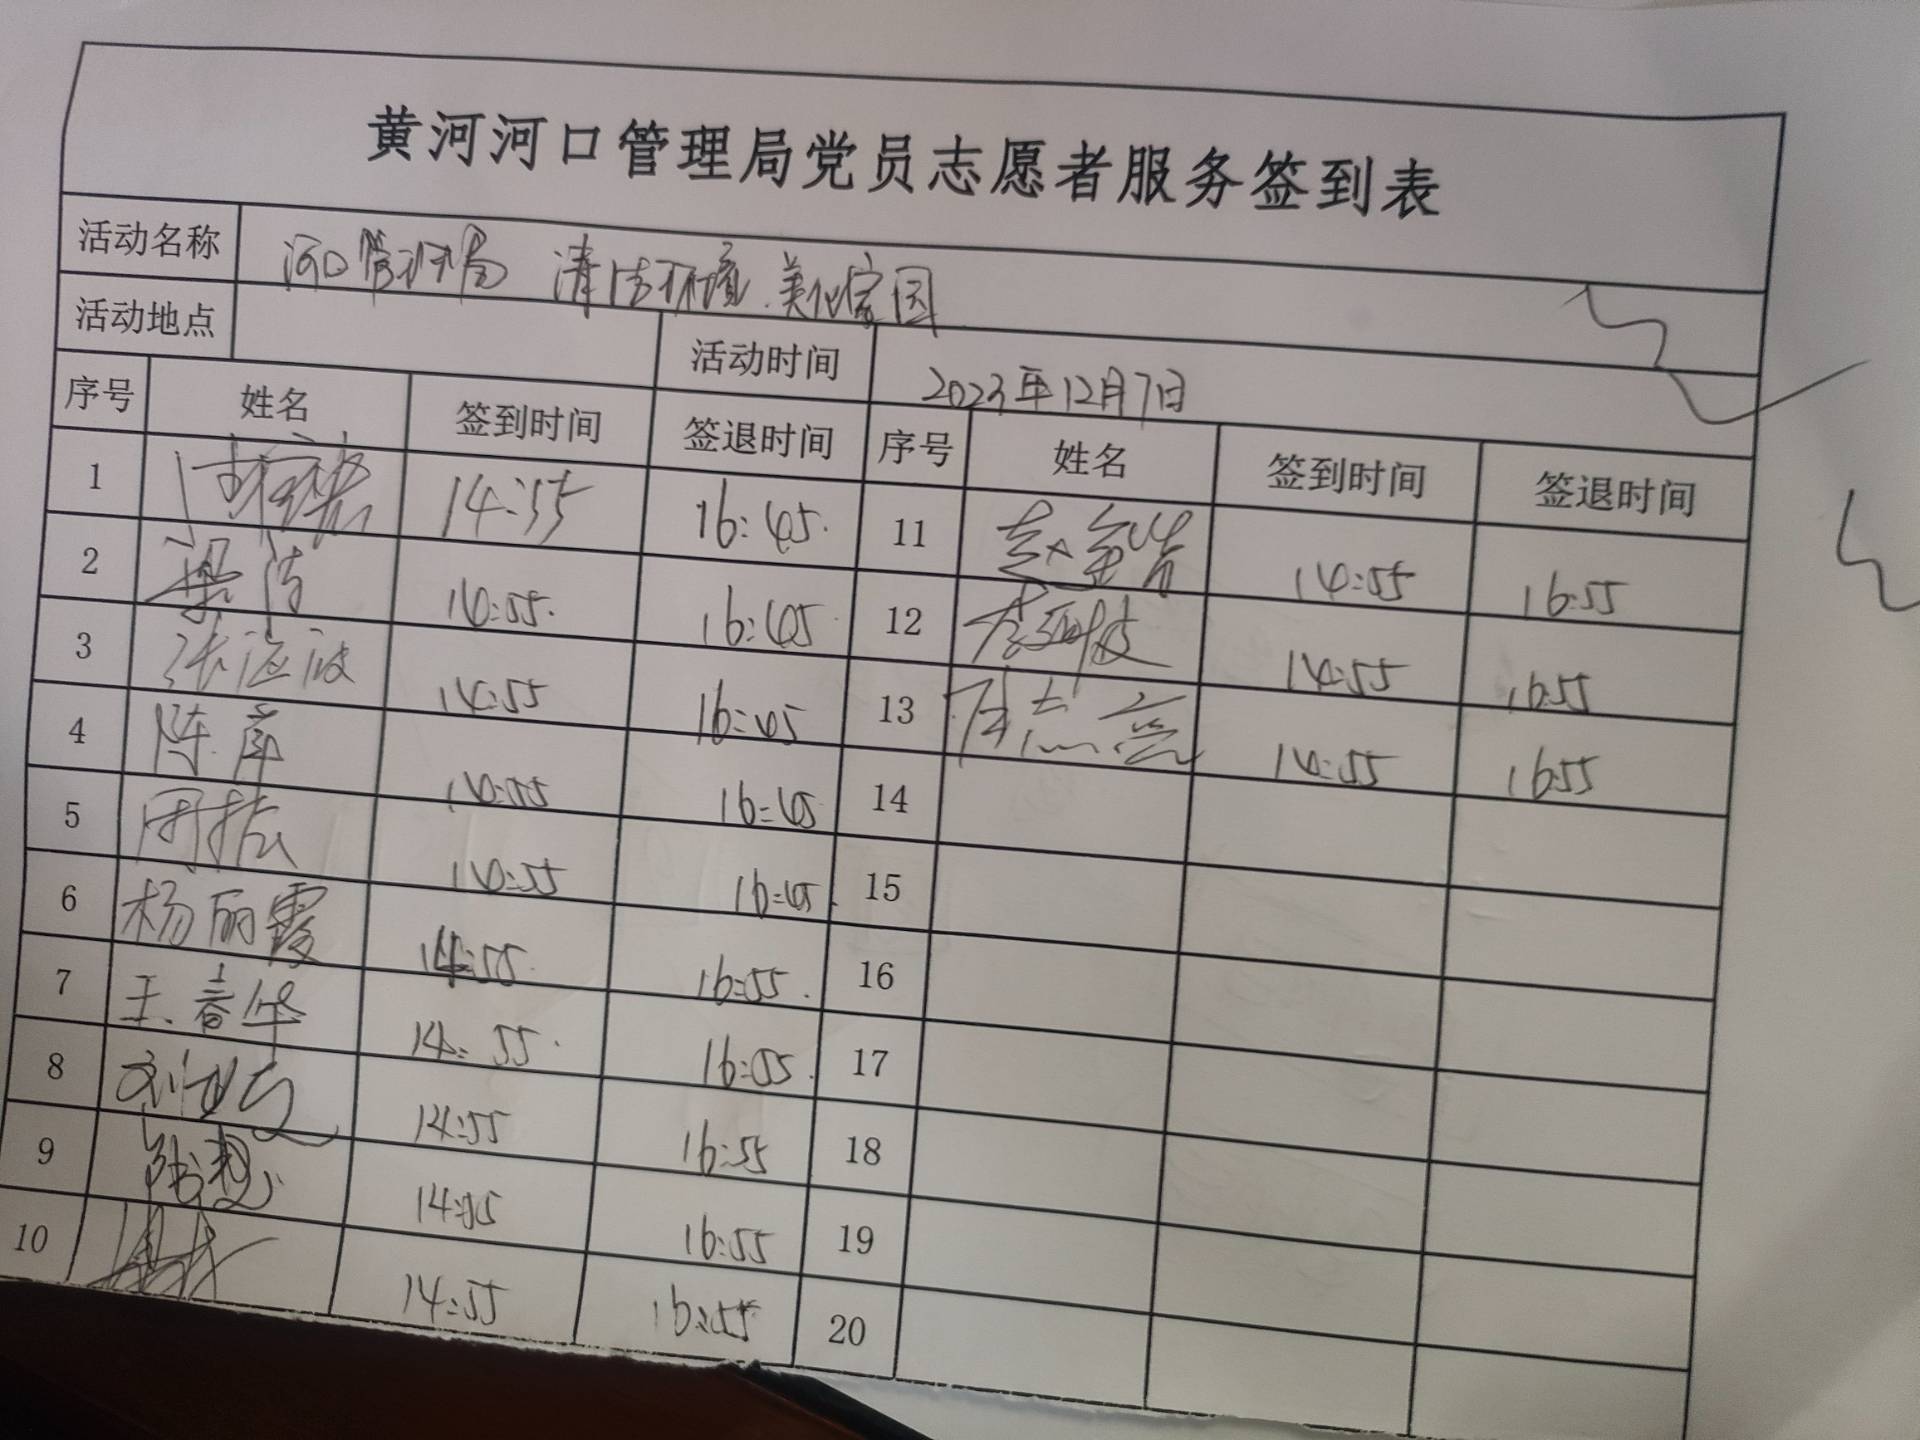 黄河河口管理局党员志愿者服务签到表
活动名称 河口管理局 清洁环境.美化家园
活动地点 活动时间 2023年12月7日
序号 姓名 签到时间 签退时间 序号 姓名 签到时间 签退时间
1 14:55 16:45. 11 14:55 16:55
2 梁洁 14:55. 16:45. 12 14:55 16:55
3 张海波 14:55 16:45 13 14:55 16:55
4 陈萍 14:55 16:45 14
5 14:55 16:45. 15
6 杨丽霞 14:55. 16:55. 16
7 王春华 14:55. 16:55. 17
8 14:55 16:55 18
9 14:55 16:55 19
10 14:55 16:55 20